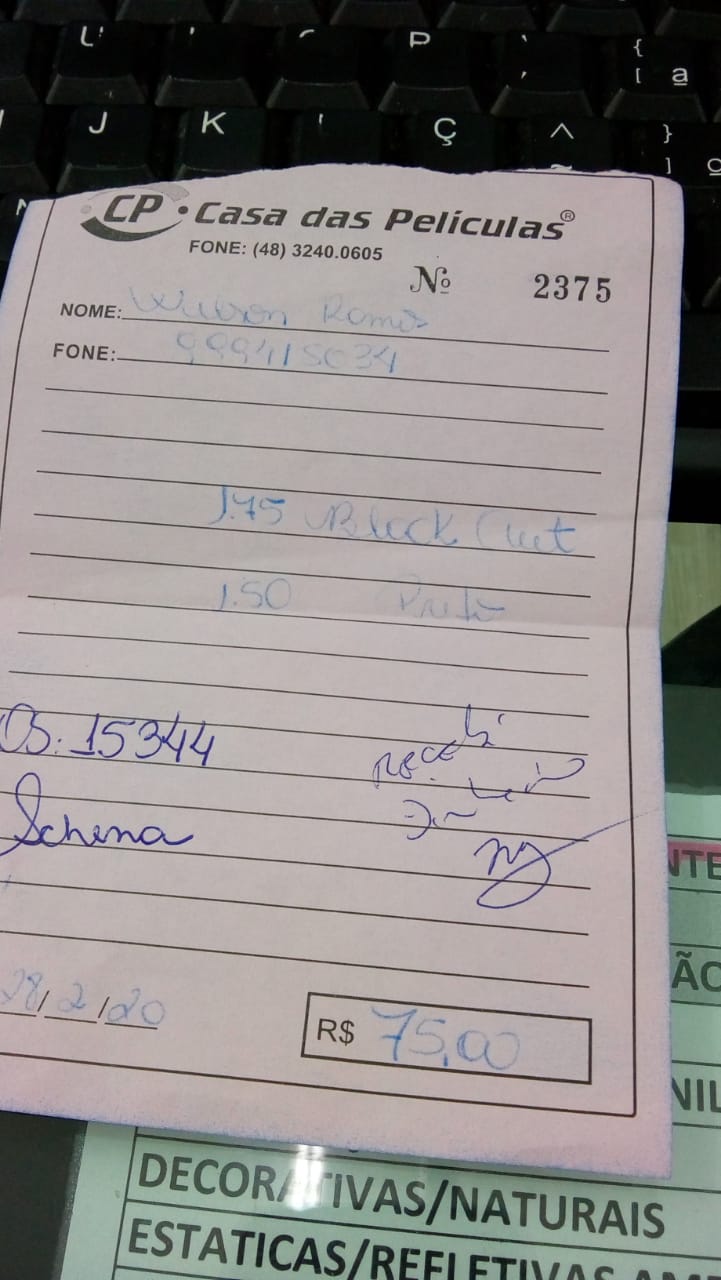 P
{
[ ª
J K Ç ^ }
~ ] º
CP • Casa das Películas®
FONE: (48) 3240.0605
Nº 2375
NOME: Wilson Ramos
FONE: 999415034
1.75 Black Out
1.50 Preto
OS: 15344
Recebi
Schena
28/2/20
R$ 75,00
NTE
ÃO
NIL
DECORATIVAS/NATURAIS
ESTATICAS/REFLETIVAS AM